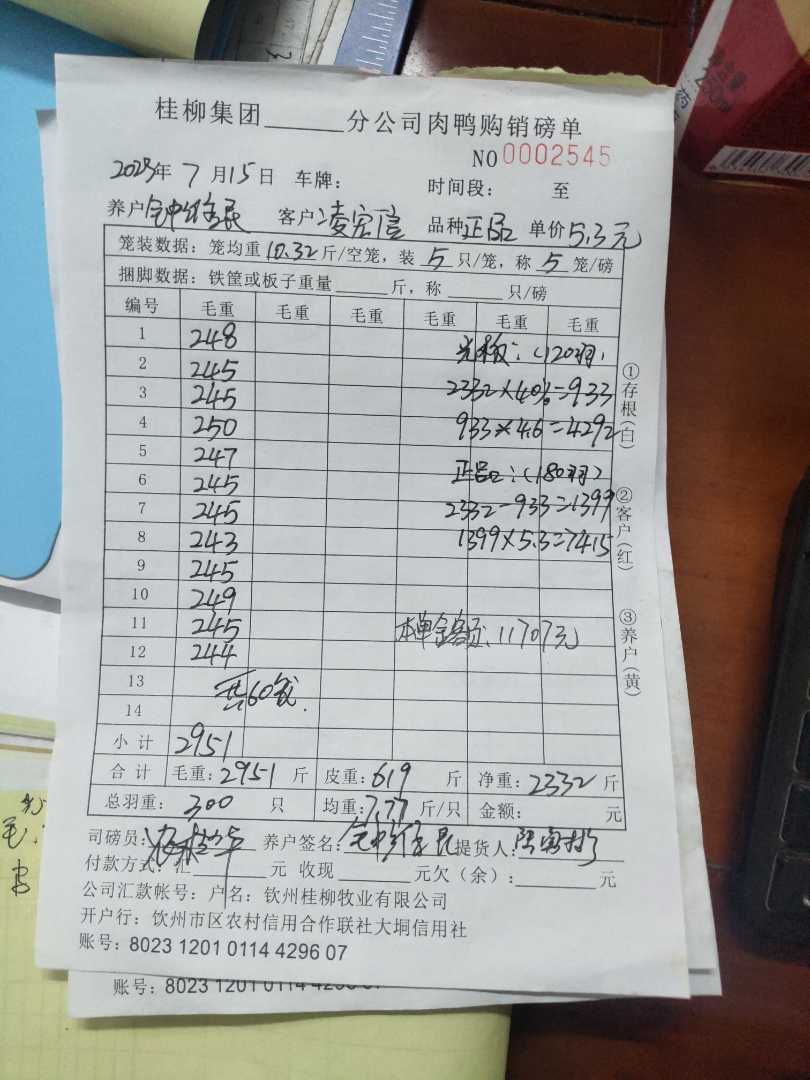 桂柳集团______分公司肉鸭购销磅单
NO 0002545
2025年 7 月 15 日 车牌: 时间段: 至
养户 客户:凌宏信 品种 正品 单价 5.3元
笼装数据: 笼均重 10.32 斤/空笼, 装 5 只/笼, 称 5 笼/磅
捆脚数据: 铁筐或板子重量______斤, 称______只/磅
编号 毛重 毛重 毛重 毛重 毛重 毛重
1 248
2 245
3 245
4 250
5 247
6 245
7 245
8 243
9 245
10 249
11 245
12 244
13 共60笼.
14
:(120羽)
2332×40%=933
933×4.6=4292
正品:(180羽)
2332-933=1399
1399×5.3=7415
本单金额:11707元
小计 2951
合计 毛重:2951 斤 皮重:619 斤 净重:2332 斤
总羽重: 300 只 均重:7.77 斤/只 金额: 元
司磅员: 养户签名: 提货人:
付款方式:汇______元 收现______元欠(余):______元
公司汇款帐号: 户名: 钦州桂柳牧业有限公司
开户行: 钦州市区农村信用合作联社大垌信用社
账号: 8023 1201 0114 4296 07
账号: 8023 1201 0114 4296 07
①存根(白)
②客户(红)
③养户(黄)